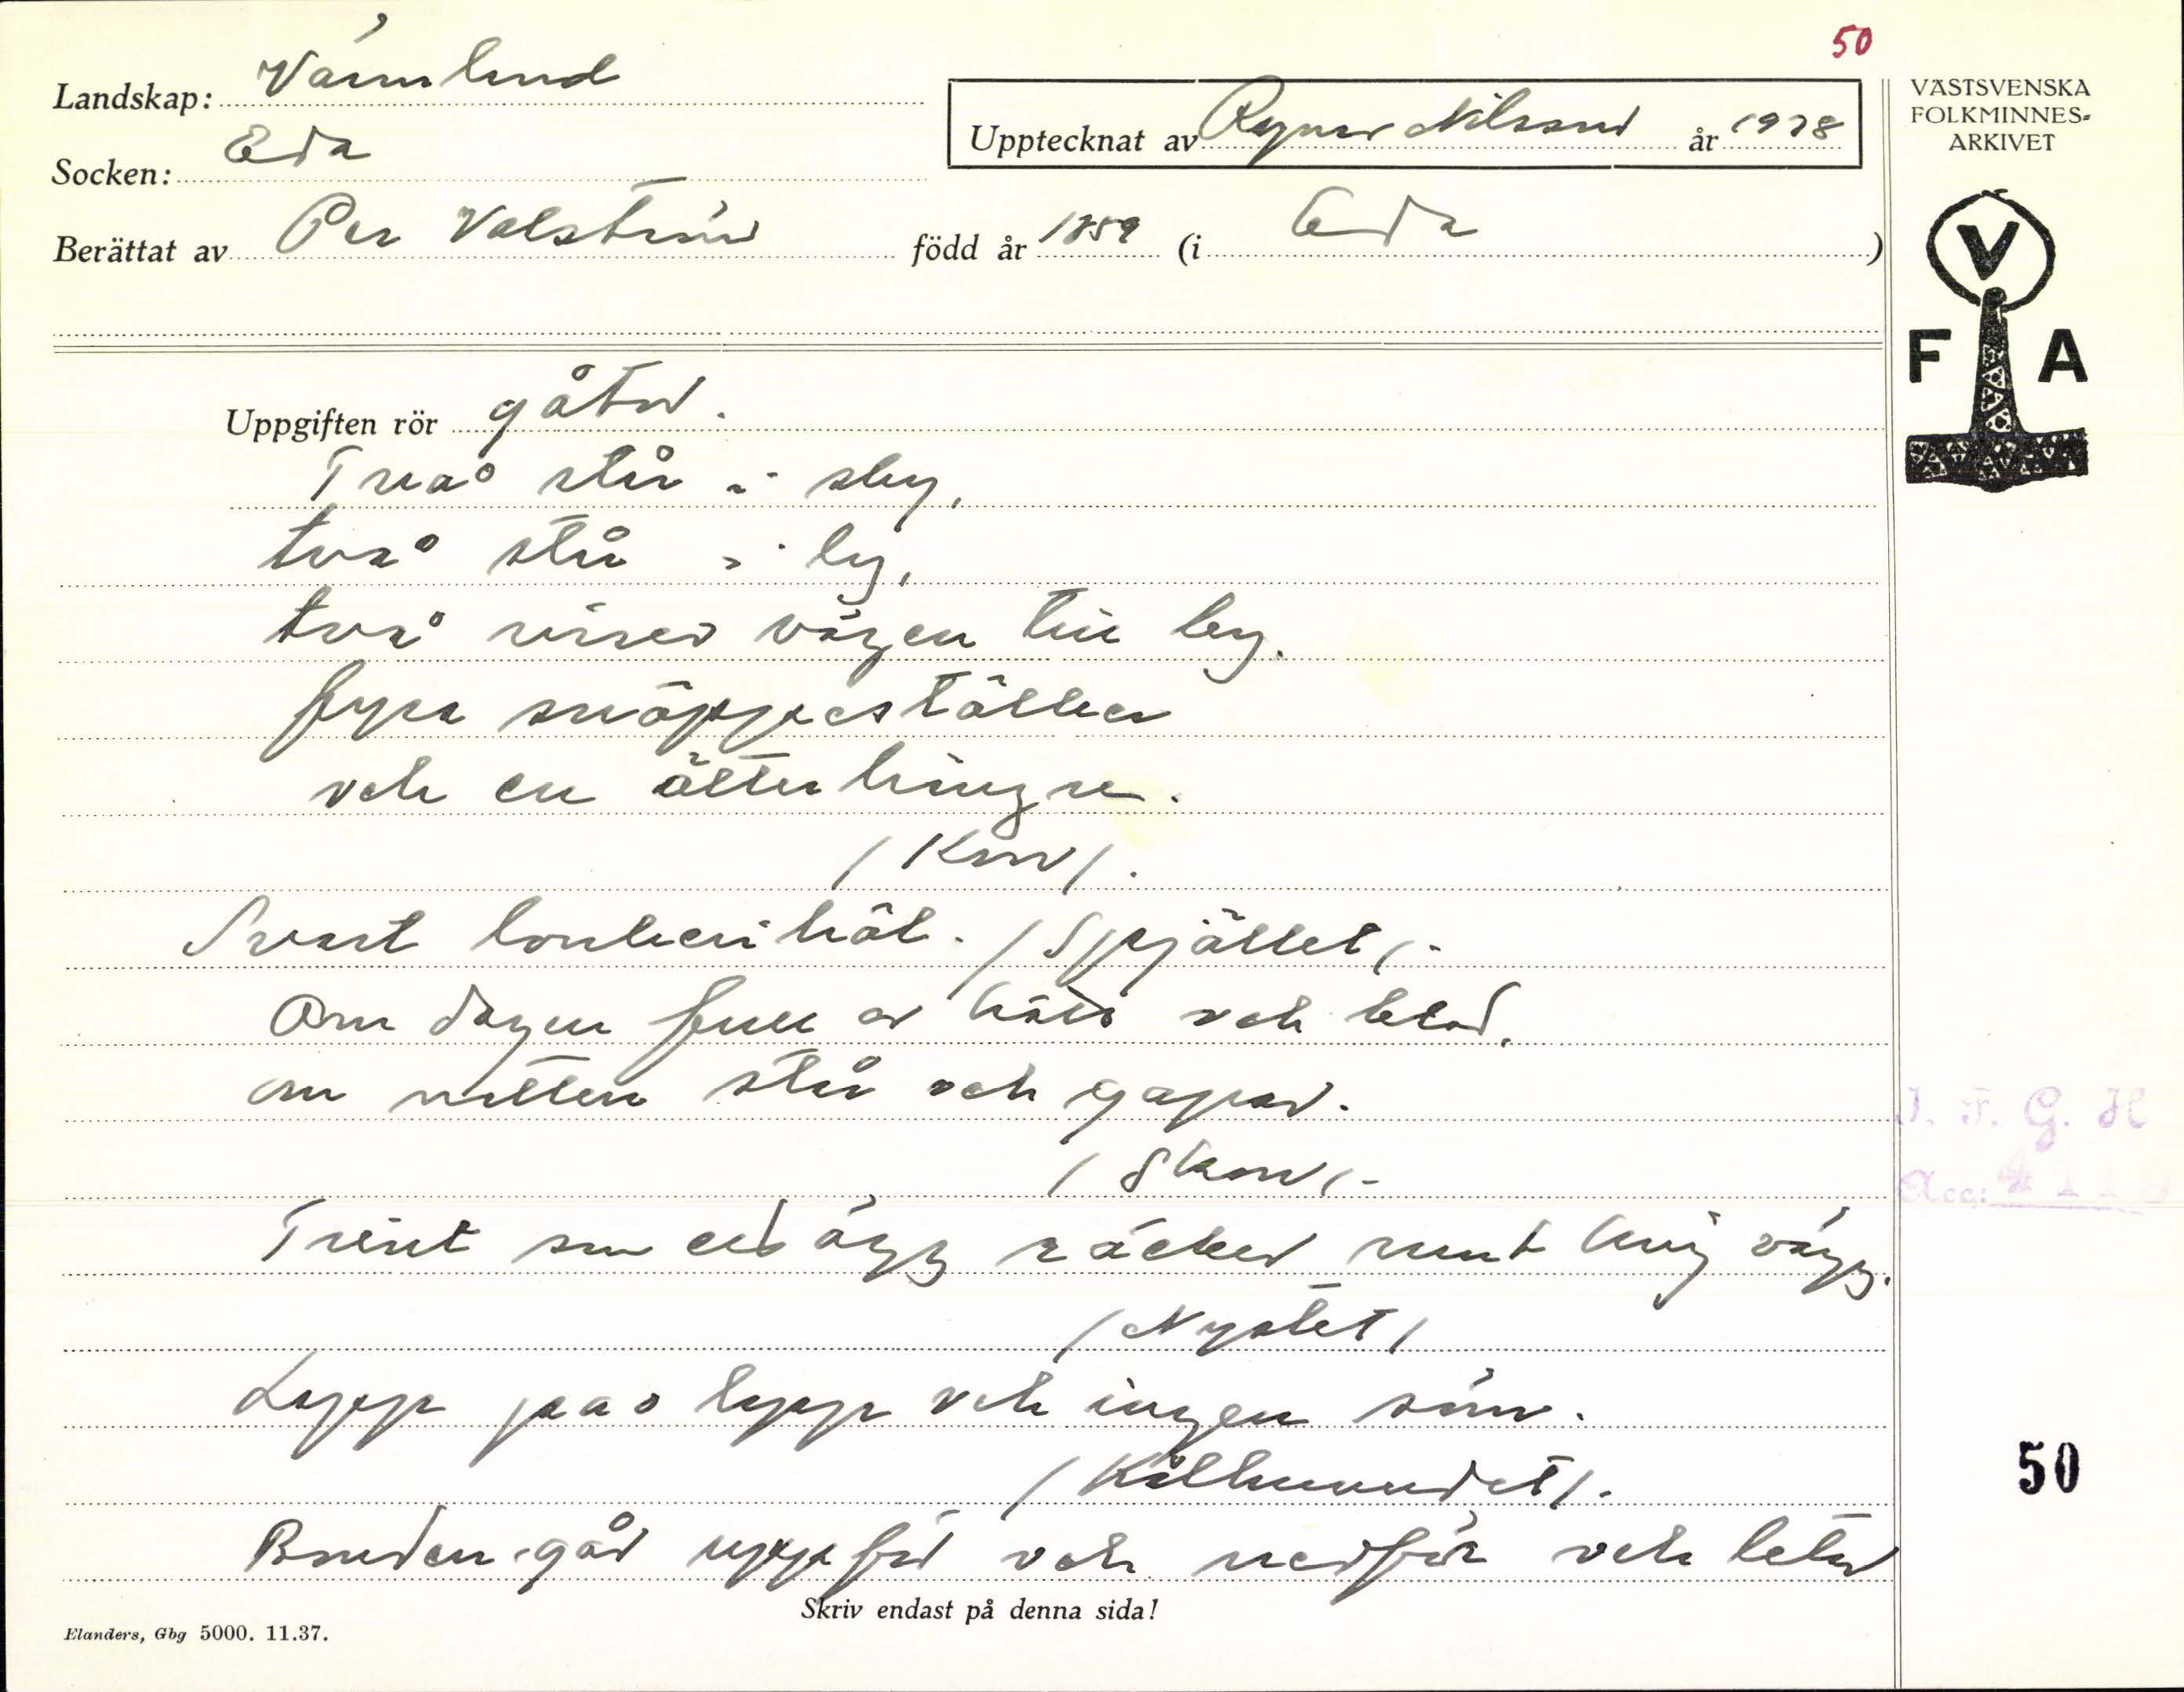 50
Landskap: Värmland
Socken: Eda
Upptecknat av Ragnar Nilsson år 1938
Berättat av Per Valström född år 1859 (i Eda)
VÄSTSVENSKA
FOLKMINNES-
ARKIVET
V
F A
Uppgiften rör gåtor.
Tvao står i sky,
tvao står i ly,
tvao visar vägen till by.
fyra snäppeställer
och en ätterhingre.
/Kon/.
Svart i höl. /Spjället/.
Om dagen full av kött och blod,
om natten står och gapar.
/Skon/.
Trint som ett ägg räcker runt kring vägg.
/Nystet/
Lapp pao lapp och ingen söm.
/Kålhuvudet/.
går uppför och nedför och letar
Skriv endast på denna sida!
Elanders, Gbg 5000. 11.37.
I. F. G. H
Acc: 4118
50